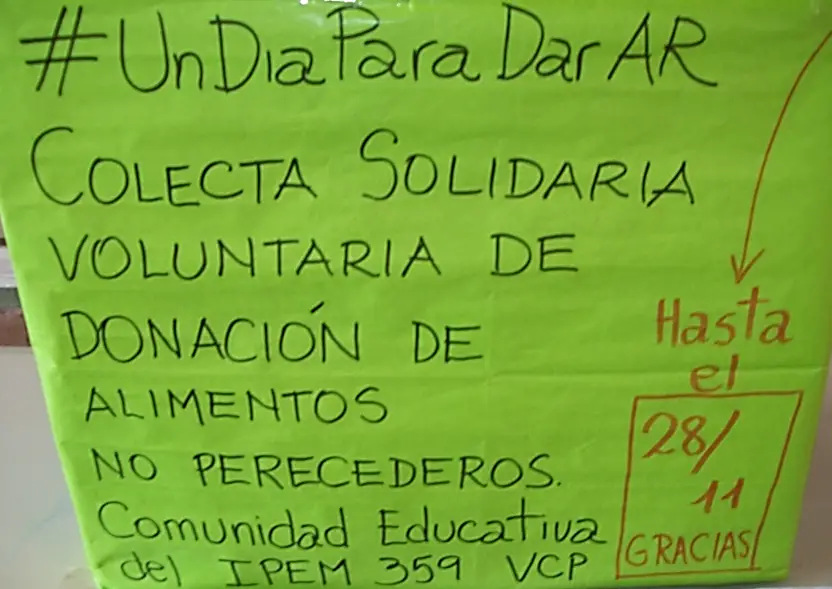 #UnDiaParaDarAR
COLECTA SOLIDARIA
VOLUNTARIA DE
DONACIÓN DE
ALIMENTOS
NO PERECEDEROS.
Comunidad Educativa
del IPEM 359 VCP
Hasta
el
28/
11
GRACIAS